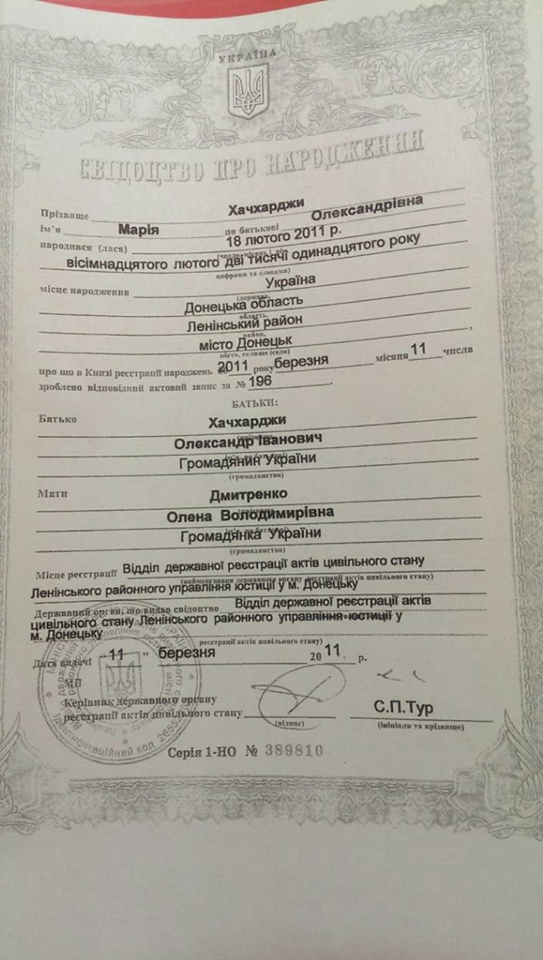 УКРАЇНА
СВІДОЦТВО ПРО НАРОДЖЕННЯ
Прізвище Хачхарджи
ім'я Марія по батькові Олександрівна
народився (лася) 18 лютого 2011 р.
вісімнадцятого лютого дві тисячі одинадцятого року
цифрами та словами)
місце народження Україна
(держава,
Донецька область
область,
Ленінський район
район,
місто Донецьк
місто, селище (село)
про що в Книзі реєстрації народжень 2011 року березня місяця 11 числа
зроблено відповідний актовий запис за № 196
БАТЬКИ:
Батько Хачхарджи
Олександр Іванович
Громадянин України
(громадянство)
Мати Дмитренко
Олена Володимирівна
Громадянка України
(громадянство)
Місце реєстрації Відділ державної реєстрації актів цивільного стану
(найменування державного органу реєстрації актів цивільного стану)
Ленінського районного управління юстиції у м. Донецьку
Державний орган, що видав свідоцтво Відділ державної реєстрації актів
цивільного стану Ленінського районного управління юстиції у
м. Донецьку
реєстрації актів цивільного стану)
Дата видачі "11" березня 2011 р.
МП
Керівник державного органу
реєстрації актів цивільного стану С.П.Тур
(підпис) (ініціали та прізвище)
Серія 1-НО № 389810